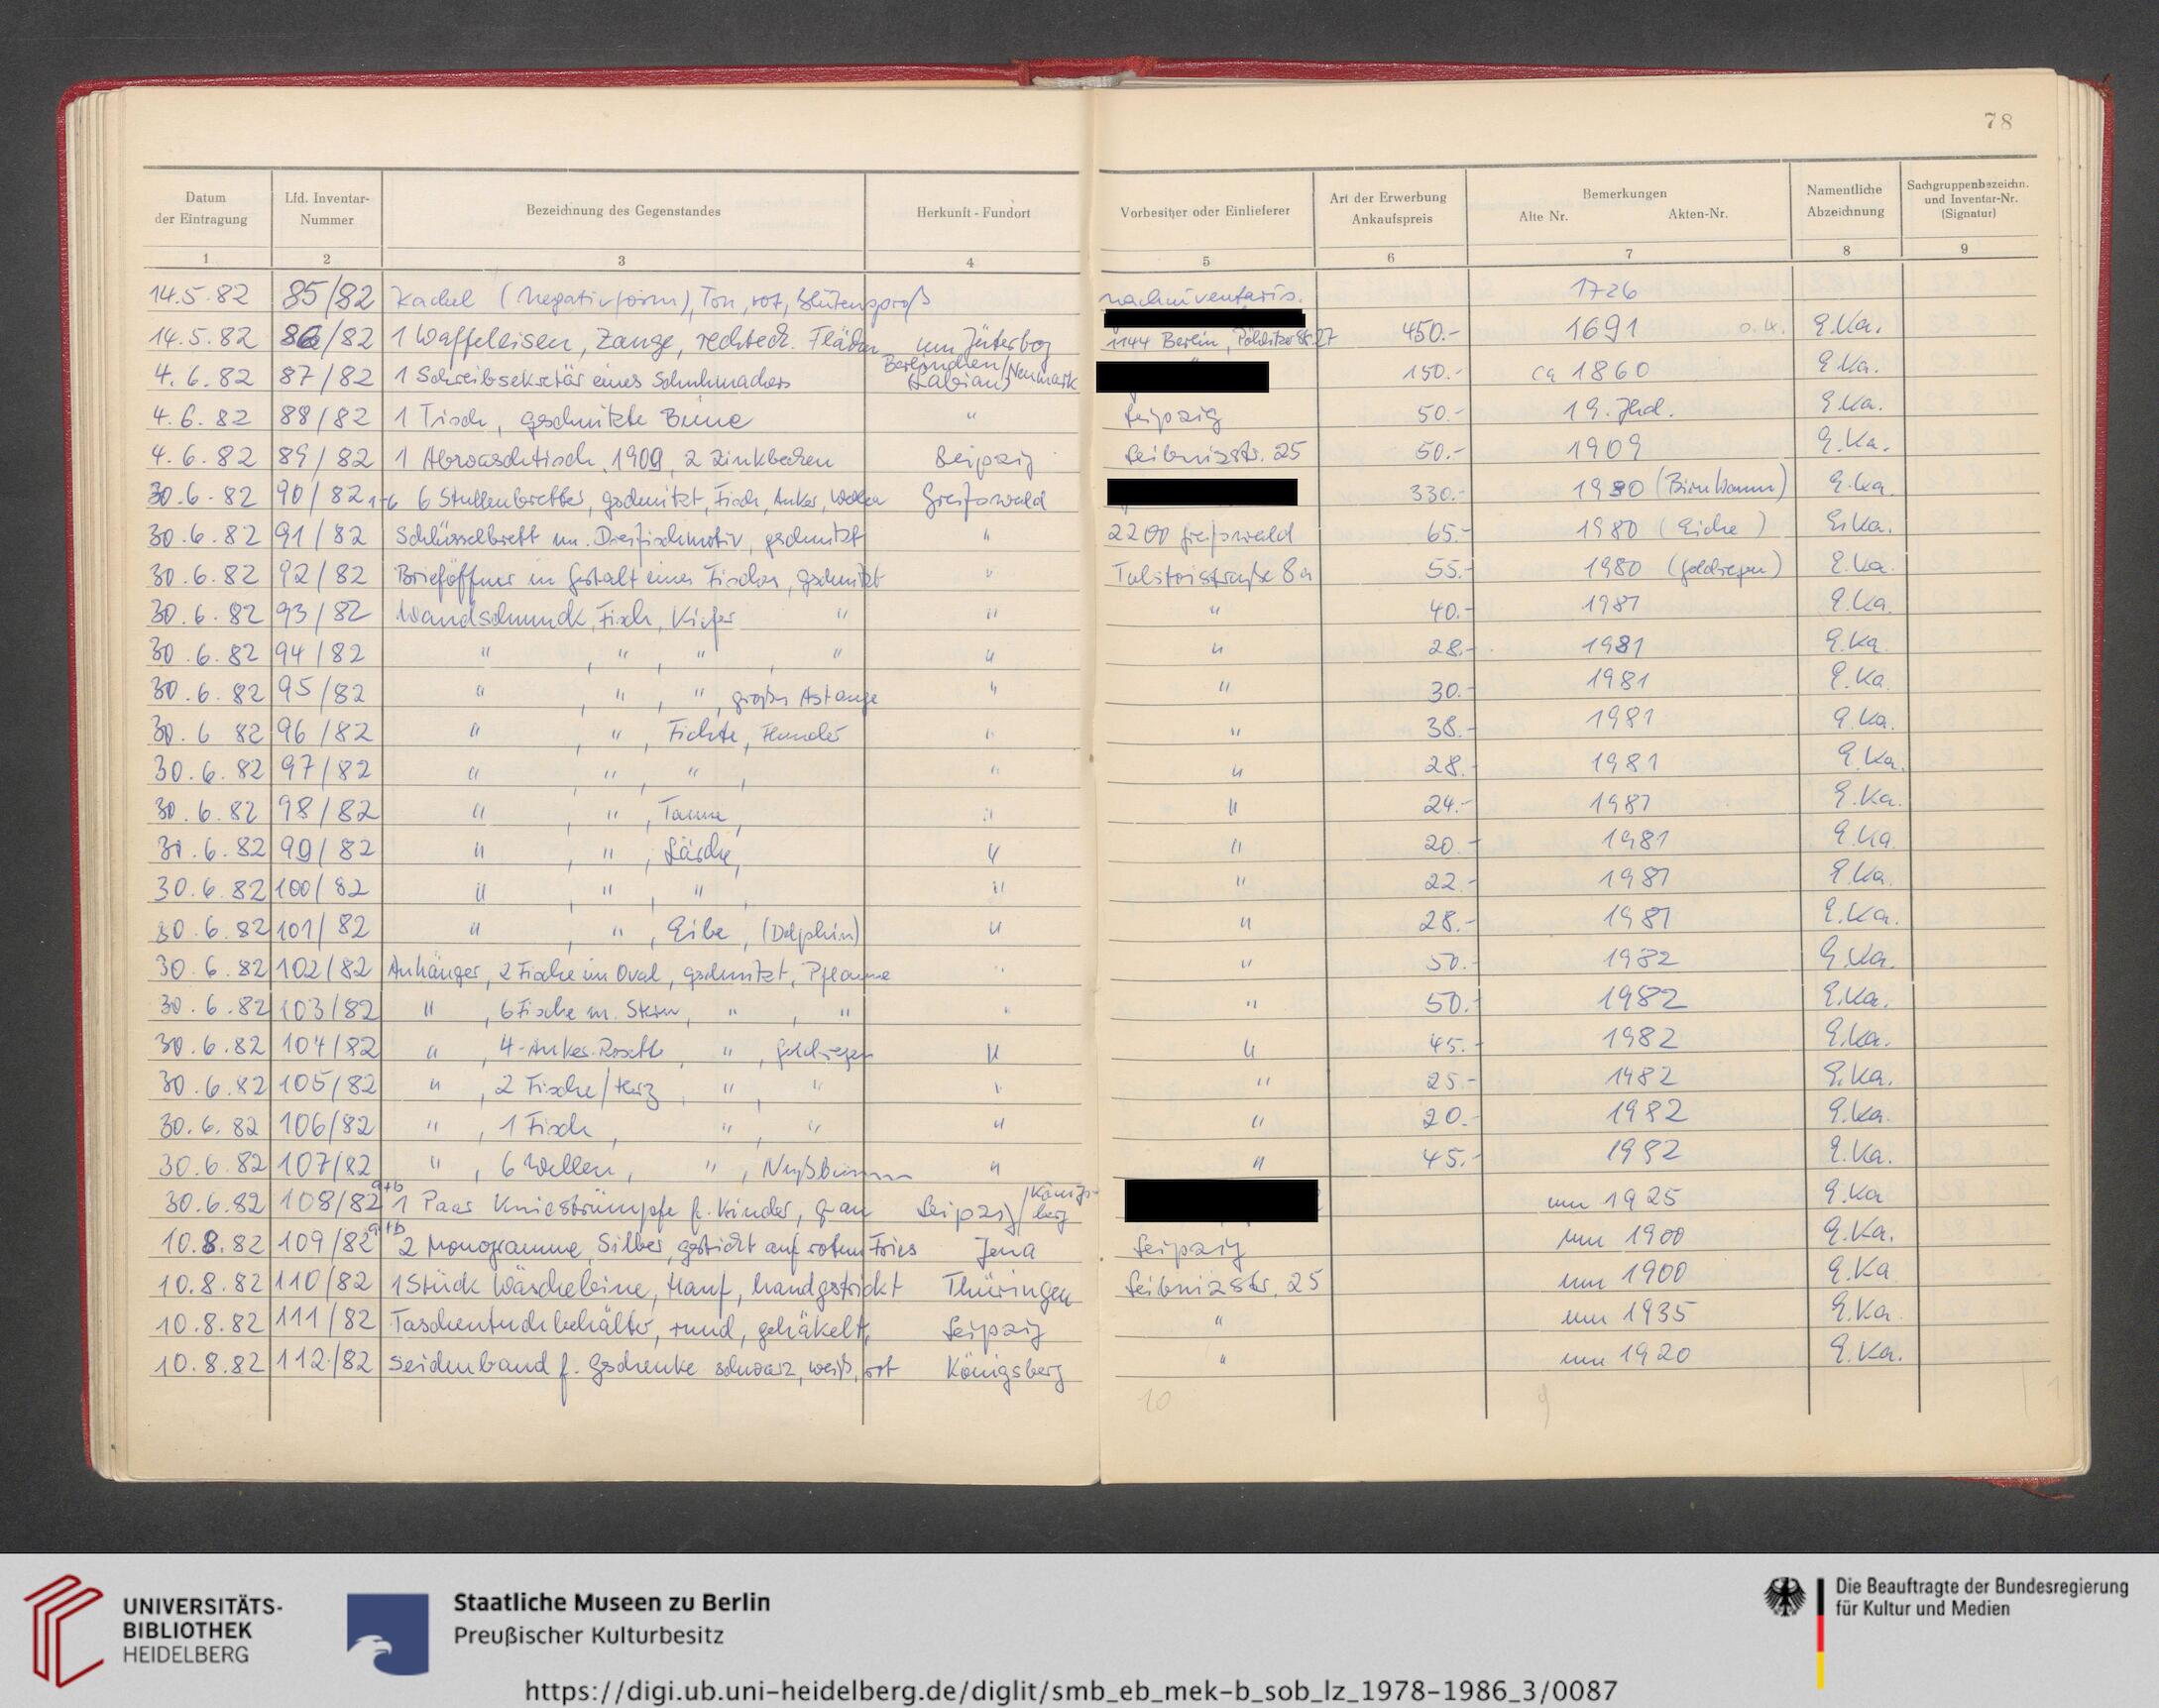 78
Datum der Eintragung | Lfd. Inventar-Nummer | Bezeichnung des Gegenstandes | Herkunft - Fundort | Vorbesitzer oder Einlieferer | Art der Erwerbung Ankaufspreis | Bemerkungen Alte Nr. Akten-Nr. | Namentliche Abzeichnung | Sachgruppenbezeichn. und Inventar-Nr. (Signatur)
1 | 2 | 3 | 4 | 5 | 6 | 7 | 8 | 9
14.5.82 | 85/82 | Kachel (Negativform), Ton, rot, Blütensproß | nachinventaris. | 1726
14.5.82 | 86/82 | 1 Waffeleisen, Zange, rechteck. Flächen | um Jüterbog | 1144 Berlin, 27 | 450.- | 1691 | E.Ka.
4.6.82 | 87/82 | 1 Schreibsekretär eines Schuhmachers | Berlinchen/Neumark (Labiau) | 150.- | ca 1860 | E.Ka.
4.6.82 | 88/82 | 1 Tisch, geschnitzte Beine | " | Leipzig | 50.- | 19. Jhd. | E.Ka.
4.6.82 | 89/82 | 1 Abwaschtisch, 1909, 2 Zinkbecken | Leipzig | Leibnizstr. 25 | 50.- | 1909 | E.Ka.
30.6.82 | 90/82 1-6 | 6 Stullenbretter, geschnitzt, Fisch, Anker, Wellen | Greifswald | 330.- | 1980 (Birnbaum) | E.Ka.
30.6.82 | 91/82 | Schlüsselbrett m. Dreifischmotiv, geschnitzt | " | 2200 Greifswald | 65.- | 1980 (Eiche) | E.Ka.
30.6.82 | 92/82 | Brieföffner in Gestalt eines Fisches, geschnitzt | " | Tolstoistraße 8a | 55.- | 1980 (Goldregen) | E.Ka.
30.6.82 | 93/82 | Wandschmuck, Fisch, Kiefer " | " | " | 40.- | 1981 | E.Ka.
30.6.82 | 94/82 | " , " , " , " | " | " | 28.- | 1981 | E.Ka.
30.6.82 | 95/82 | " , " , " , großes Astauge | " | " | 30.- | 1981 | E.Ka.
30.6 82 | 96/82 | " , " , Fichte, Flunder | " | " | 38.- | 1981 | E.Ka.
30.6.82 | 97/82 | " , " , " , | " | " | 28.- | 1981 | E.Ka.
30.6.82 | 98/82 | " , " , Tanne, | " | " | 24.- | 1981 | E.Ka.
30.6.82 | 99/82 | " , " , Lärche, | " | " | 20.- | 1981 | E.Ka.
30.6.82 | 100/82 | " , " , " , | " | " | 22.- | 1981 | E.Ka.
30.6.82 | 101/82 | " , " , Eibe, (Delphin) | " | " | 28.- | 1981 | E.Ka.
30.6.82 | 102/82 | Anhänger, 2 Fische im Oval, geschnitzt, Pflaume | " | " | 50.- | 1982 | E.Ka.
30.6.82 | 103/82 | " , 6 Fische m. Stern, " , " | " | " | 50.- | 1982 | E.Ka.
30.6.82 | 104/82 | " , 4-Anker-Rosette, " , Goldregen | " | " | 45.- | 1982 | E.Ka.
30.6.82 | 105/82 | " , 2 Fische/Herz, " , " | " | " | 25.- | 1982 | E.Ka.
30.6.82 | 106/82 | " , 1 Fisch, " , " | " | " | 20.- | 1982 | E.Ka.
30.6.82 | 107/82 | " , 6 Wellen, " , Nußbaum | " | " | 45.- | 1982 | E.Ka.
30.6.82 | 108/82 a+b | 1 Paar Kniestrümpfe f. Kinder, grau | Leipzig/Königsberg | um 1925 | E.Ka
10.8.82 | 109/82 a+b | 2 Monogramme, Silber, gestickt auf rotem Fries | Jena | Leipzig | um 1900 | E.Ka.
10.8.82 | 110/82 | 1 Stück Wäscheleine, Hanf, handgestrickt | Thüringen | Leibnizstr. 25 | um 1900 | E.Ka
10.8.82 | 111/82 | Taschentuchbehälter, rund, gehäkelt, | Leipzig | " | um 1935 | E.Ka.
10.8.82 | 112/82 | Seidenband f. Geschenke schwarz, weiß, rot | Königsberg | " | um 1920 | E.Ka.
10
UNIVERSITÄTS-
BIBLIOTHEK
HEIDELBERG
Staatliche Museen zu Berlin
Preußischer Kulturbesitz
Die Beauftragte der Bundesregierung
für Kultur und Medien
https://digi.ub.uni-heidelberg.de/diglit/smb_eb_mek-b_sob_lz_1978-1986_3/0087